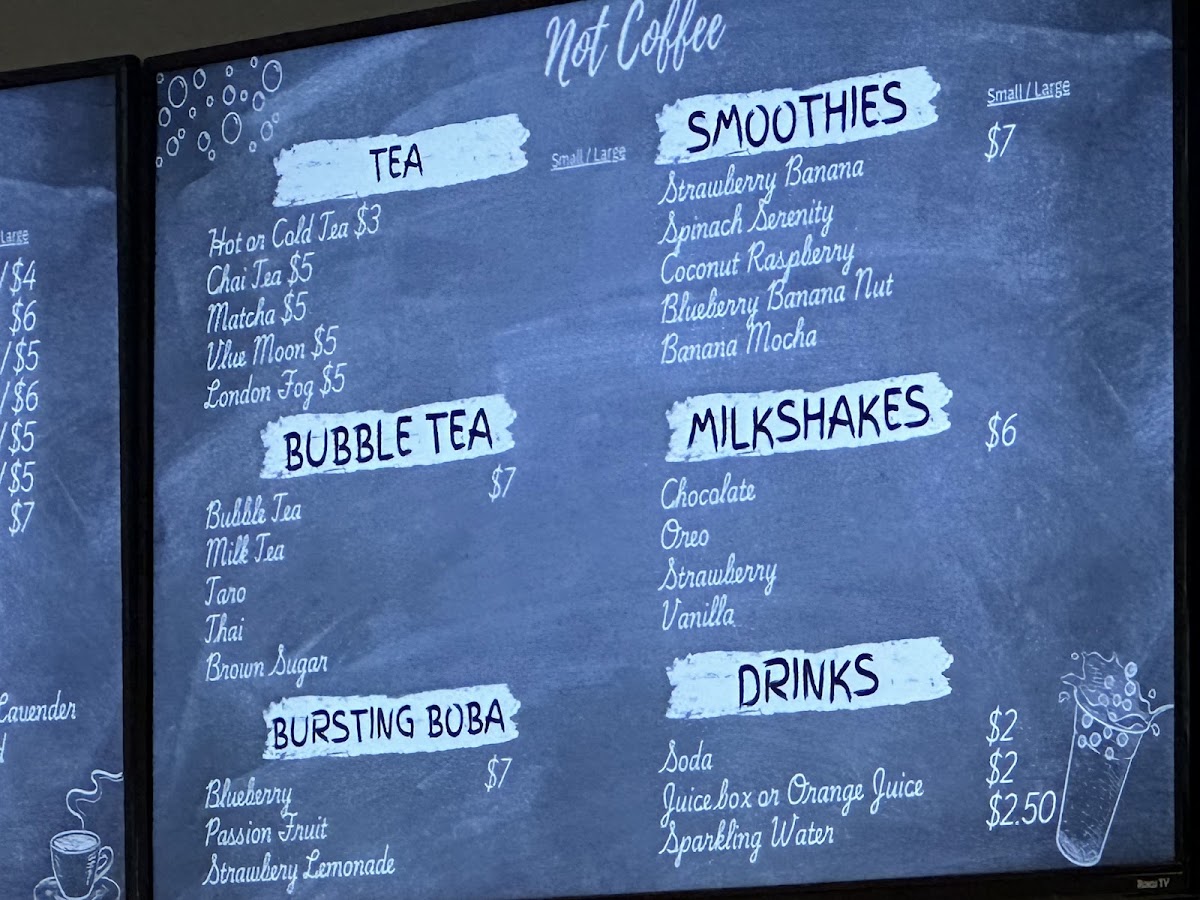 Large
/$4
$6
/$5
/$6
/$5
/$5
$7
Lavender
Not Coffee
TEA
Small / Large
Hot or Cold Tea $3
Chai Tea $5
Matcha $5
Vlue Moon $5
London Fog $5
BUBBLE TEA
$7
Bubble Tea
Milk Tea
Taro
Thai
Brown Sugar
BURSTING BOBA
$7
Blueberry
Passion Fruit
Strawbery Lemonade
SMOOTHIES
Small / Large
$7
Strawberry Banana
Spinach Serenity
Coconut Raspberry
Blueberry Banana Nut
Banana Mocha
MILKSHAKES
$6
Chocolate
Oreo
Strawberry
Vanilla
DRINKS
Soda $2
Juice box or Orange Juice $2
Sparkling Water $2.50
Roku TV